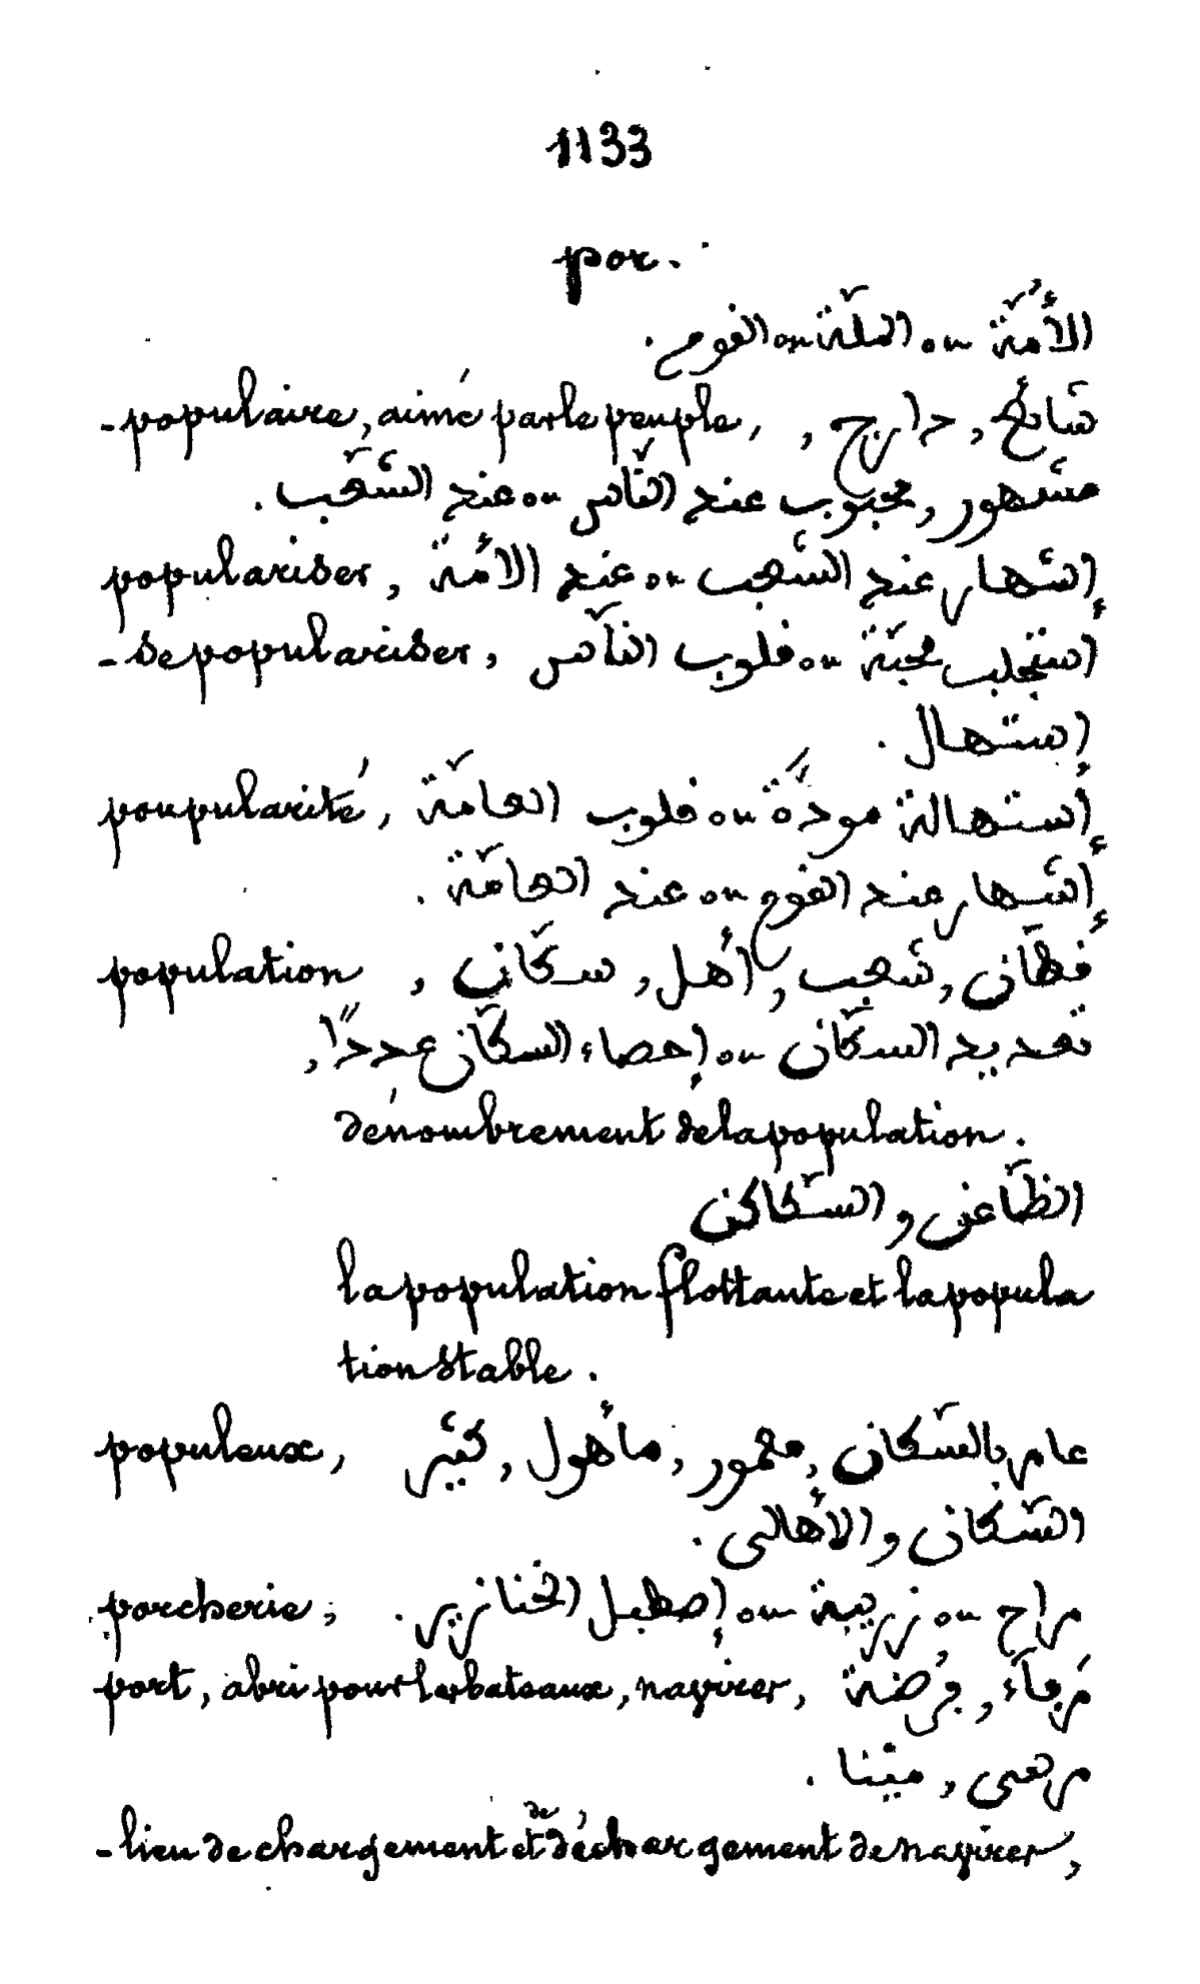 1133
por.
الأُمَّة ou الملَّة ou القوم.
-populaire, aimé par le peuple, شائع, دارج,
مشهور, محبوب عند النَّاس ou عند الشَّعب.
populariser, إشهار عند الشَّعب ou عند الأمَّة
-se populariser, استجلب محبّة ou قلوب النَّاس
إستهال.
poupularité, إستهالة مودَّة ou قلوب العامَّة
إشهار عند القوم ou عند العامَّة.
population, قطَّان, شعب, أهل, سكَّان
تعديد السكَّان ou إحصاء السكَّان عددًا,
dénombrement de la population.
الظَّاعن والسَّاكن
la population flottante et la popula
tion stable.
populeux, عامر بالسَّكان, معمور, مأهول, كثير
السَّكان والأهالي.
porcherie, مراح ou زريبة ou إصطبل الخنازير.
port, abri pour les bateaux, navires, مرفاء, فرضة
مرسى, مينا.
-lieu de chargement et de déchargement de navires,